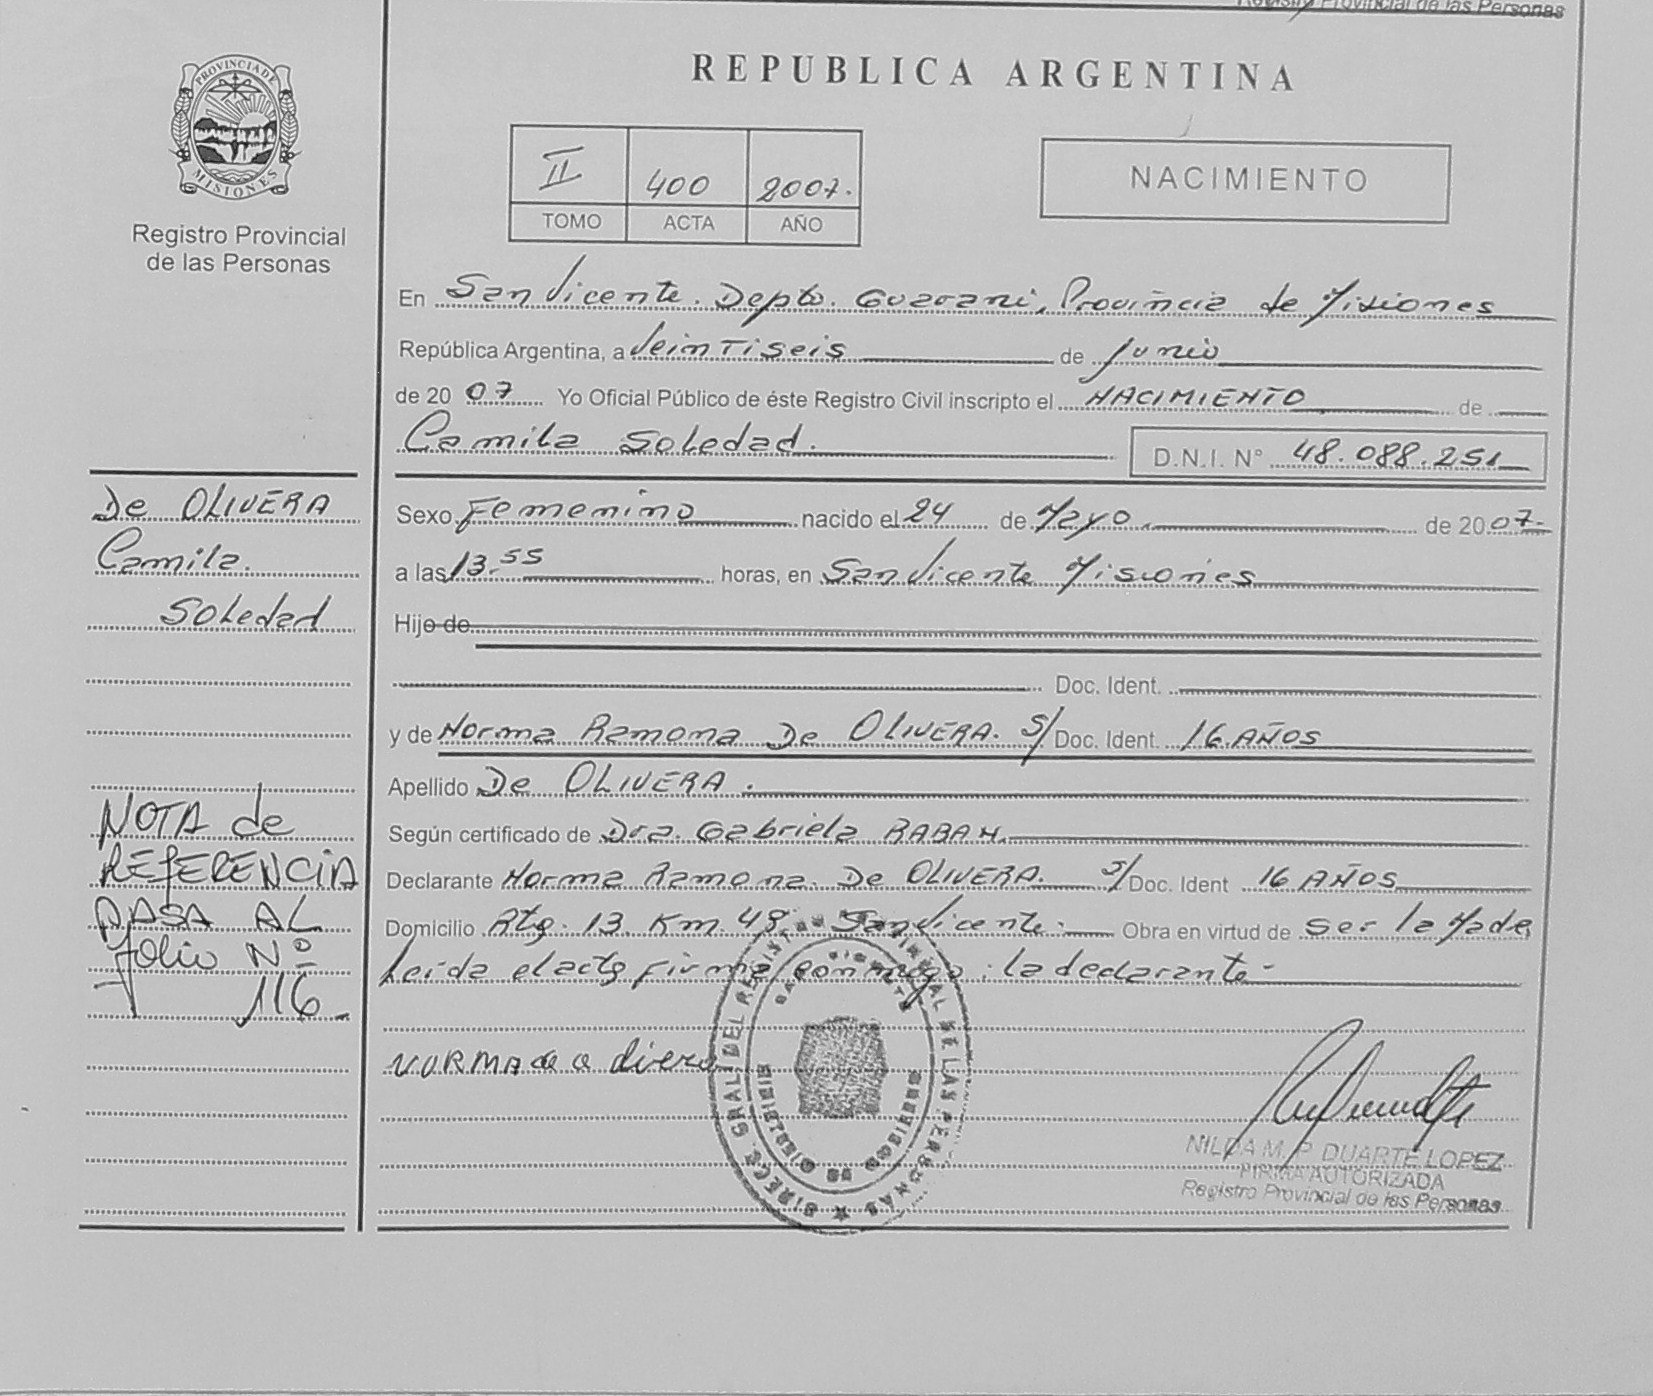 Registro Provincial de las Personas
PROVINCIA DE
MISIONES
Registro Provincial
de las Personas
REPUBLICA ARGENTINA
II 400 2007.
TOMO ACTA AÑO
NACIMIENTO
En San Vicente. Depto. Guarani, Provincia de Misiones
República Argentina, a Veintiseis de Junio
de 20 07 Yo Oficial Público de éste Registro Civil inscripto el NACIMIENTO de
Camila Soledad.
D.N.I. N° 48.088.251
De OLIVERA
Camila
Soledad
Sexo Femenino nacido el 24 de Mayo de 20 07.
a las 13.55 horas, en San Vicente Misiones
Hijo de
Doc. Ident.
y de Norma Ramona De OLIVERA. S/ Doc. Ident. 16 AÑOS
Apellido De OLIVERA.
Según certificado de Dra. Gabriela
Declarante Norma Ramona. De OLIVERA. S/ Doc. Ident 16 AÑOS
Domicilio Rta. 13. Km. 48. San Vicente. Obra en virtud de ser la Madre
Leída el acta firma conmigo: la declarante-
NOTA de
REFERENCIA
PASA AL
folio Nº
116.
NORMA de o livera
DIRECC. GRAL. DEL REGISTRO PROVINCIAL DE LAS PERSONAS
SAN VICENTE
MISIONES
NILDA M. P. DUARTE LOPEZ
FIRMA AUTORIZADA
Registro Provincial de las Personas